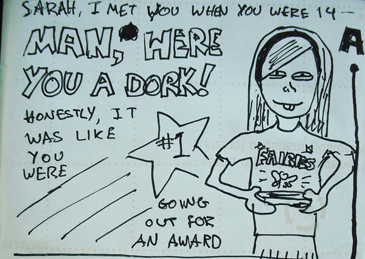 SARAH, I MET YOU WHEN YOU WERE 14—
MAN, WERE
YOU A DORK!
HONESTLY, IT
WAS LIKE
YOU
WERE
#1
GOING
OUT FOR
AN AWARD
FAIRIES
A